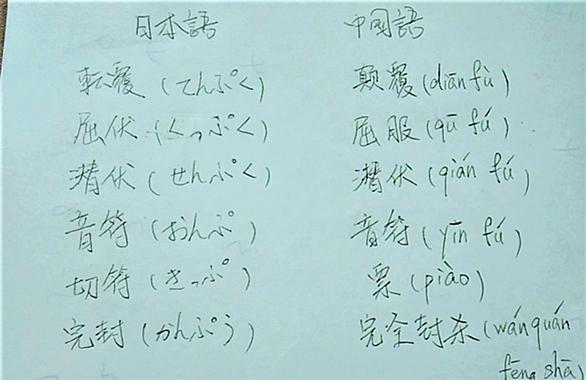 日本語 中国語
転覆(てんぷく) 颠覆(diānfù)
屈伏(くっぷく) 屈服(qū fú)
潜伏(せんぷく) 潜伏(qián fú)
音符(おんぷ) 音符(yīn fú)
切符(きっぷ) 票(piào)
完封(かんぷう) 完全封杀(wánquán
fēng shā)